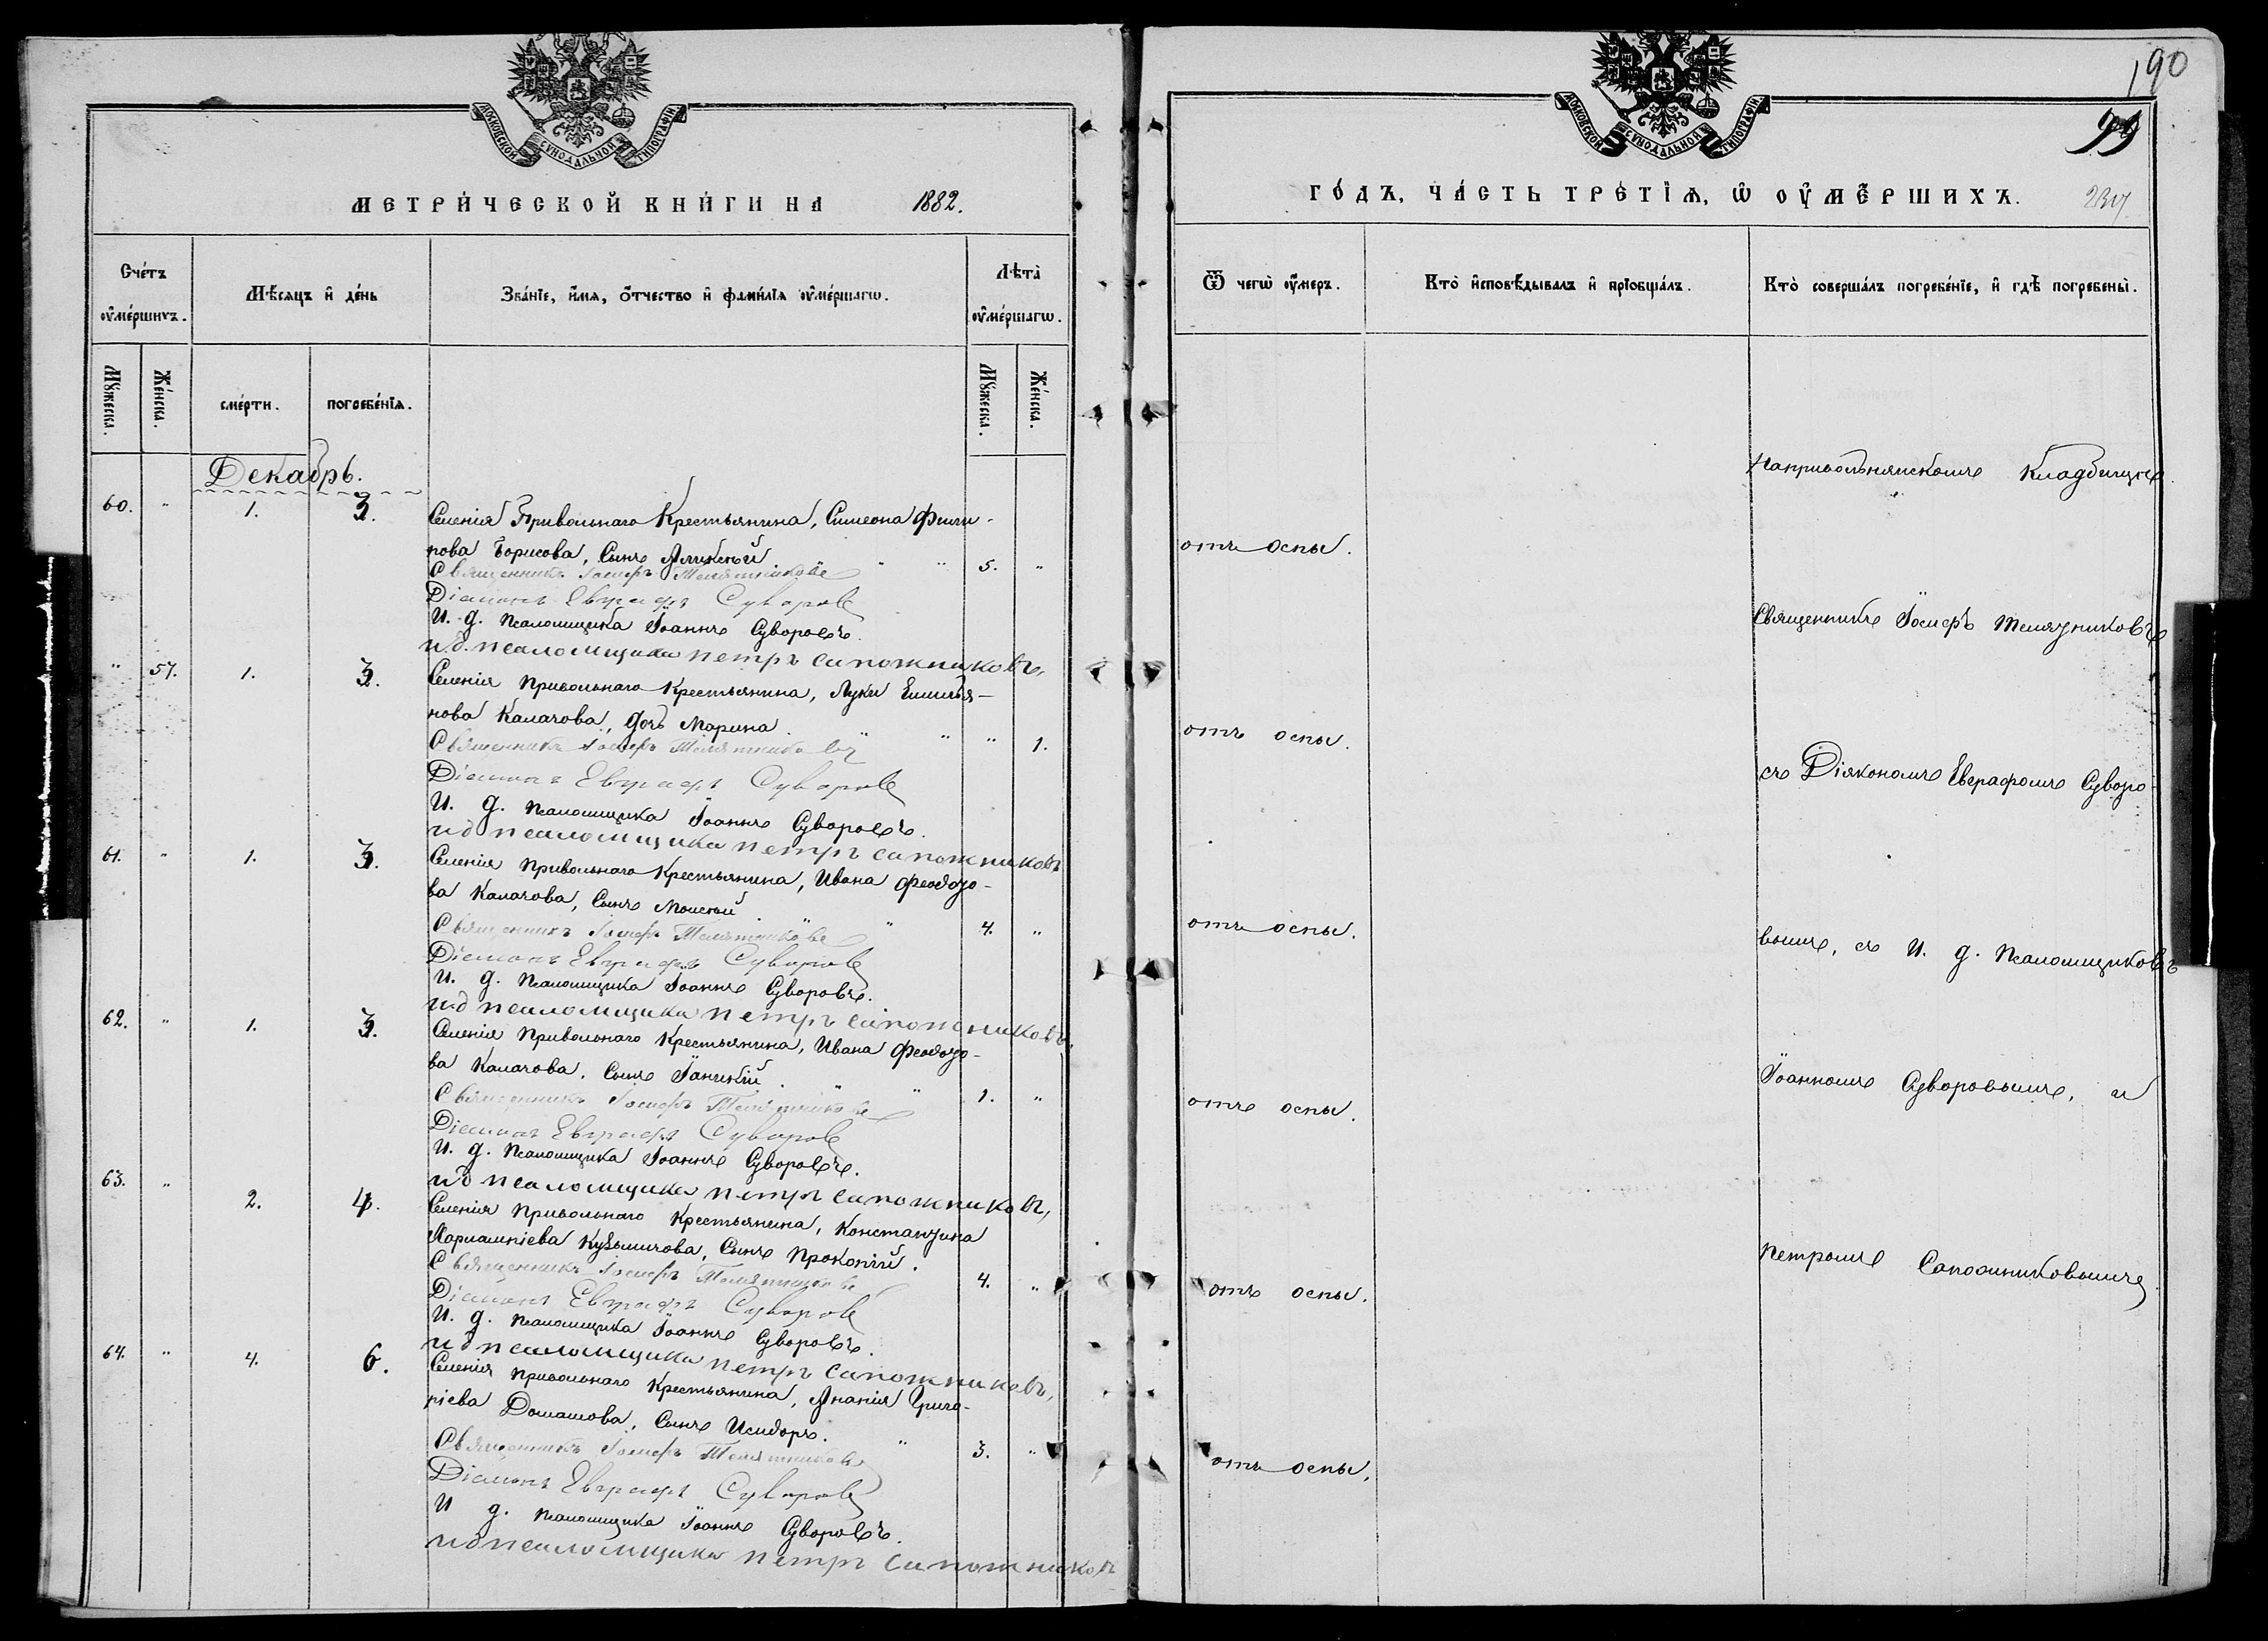 МОСКОВСКОЙ СѴНОДАЛЬНОЙ ТИПОГРАФІИ
МЕТРИ́ЧЕСКОЙ КНИ́ГИ НА 1882.
Сче́тъ оу҆ме́ршихъ.
Мѣ́сяцъ и҆ де́нь
Зва́нїе, и҆́мѧ, ѻ҆́тчество и҆ фами́лїѧ оу҆ме́ршагѡ.
Лѣ́та оу҆ме́ршагѡ.
Мꙋ́жеска.
Же́нска.
сме́рти.
погребе́нїѧ.
Мꙋ́жеска.
Же́нска.
Декабрь.
60. " 1. 3. Селенія Привольнаго Крестьянина, Симеона Фили-
пова Борисова, Сынъ Аликсѣй " " 5. "
Священникъ Іосифъ Телятниковъ
Діаконъ Евграфъ Суворов
И. д. Псаломщика Іоаннъ Суворовъ.
и.д. псаломщика петръ сапожниковъ,
" 57. 1. 3. Селенія Привольнаго Крестьянина, Луки Емилья-
нова Калачова, дочь Марина. " " " 1.
Священникъ Іосифъ Телятниковъ
Діаконъ Евграфъ Суворов
И. д. Псаломщика Іоаннъ Суворовъ.
ид псаломщика петръ сапожниковъ
61. " 1. 3. Селенія Привольнаго Крестьянина, Ивана Феодоро-
ва Калачова, Сынъ Моисей. " " 4. "
Священникъ Іосифъ Телятниковъ
Діаконъ Евграфъ Суворов
И. д. Псаломщика Іоаннъ Суворовъ.
ид псаломщика петръ сапожниковъ.
62. " 1. 3. Селенія Привольнаго Крестьянина, Ивана Феодоро-
ва Калачова. Сынъ Іаникій. " " 1. "
Священникъ Іосифъ Телятниковъ
Діаконъ Евграфъ Суворов
И. д. Псаломщика Іоаннъ Суворовъ.
ид псаломщика петръ сапожниковъ,
63. " 2. 4. Селенія Привольнаго Крестьянина, Константина
Кузьмичова, Сынъ Прокопій. 4. "
Священникъ Іосифъ Телятниковъ
Діаконъ Евграфъ Суворов
И. д. Псаломщика Іоаннъ Суворовъ.
ид псаломщика петръ сапожниковъ,
64. " 4. 6. Селенія Привольнаго Крестьянина, Ананія Григо-
ріева Домашова, Сынъ Исидоръ. " 3. "
Священникъ Іосифъ Телятниковъ
Діаконъ Евграфъ Суворов
И д. Псаломщика Іоаннъ Суворовъ.
ид псаломщика петръ сапожников
190
99
МОСКОВСКОЙ СѴНОДАЛЬНОЙ ТИПОГРАФІИ
ГО́ДЪ, ЧА́СТЬ ТРЕ́ТЇѦ, Ѡ҆ ОУ҆МЕ́РШИХЪ.
Ѿ чегѡ̀ оу҆́меръ.
Кто̀ и҆сповѣ́дывалъ и҆ прїѡбща́лъ.
Кто̀ соверша́лъ погребе́нїе, и҆ гдѣ̀ погребены̀.
На привольнянскомъ Кладбищѣ.
отъ оспы.
Священникъ Іосифъ Телятниковъ
отъ оспы.
съ Діякономъ Евграфомъ Суворо-
отъ оспы.
вымъ, съ И. д. Псаломщиковъ
отъ оспы.
Іоанномъ Суворовымъ, и
отъ оспы.
Петромъ Сапожниковымъ.
отъ оспы.